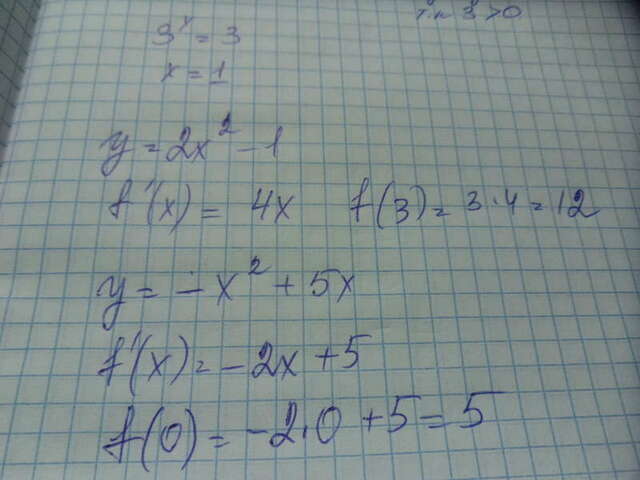 3ˣ = 3
x = 1
y = 2x² - 1
f'(x) = 4x f(3) = 3·4 = 12
y = -x² + 5x
f'(x) = -2x + 5
f(0) = -2·0 + 5 = 5